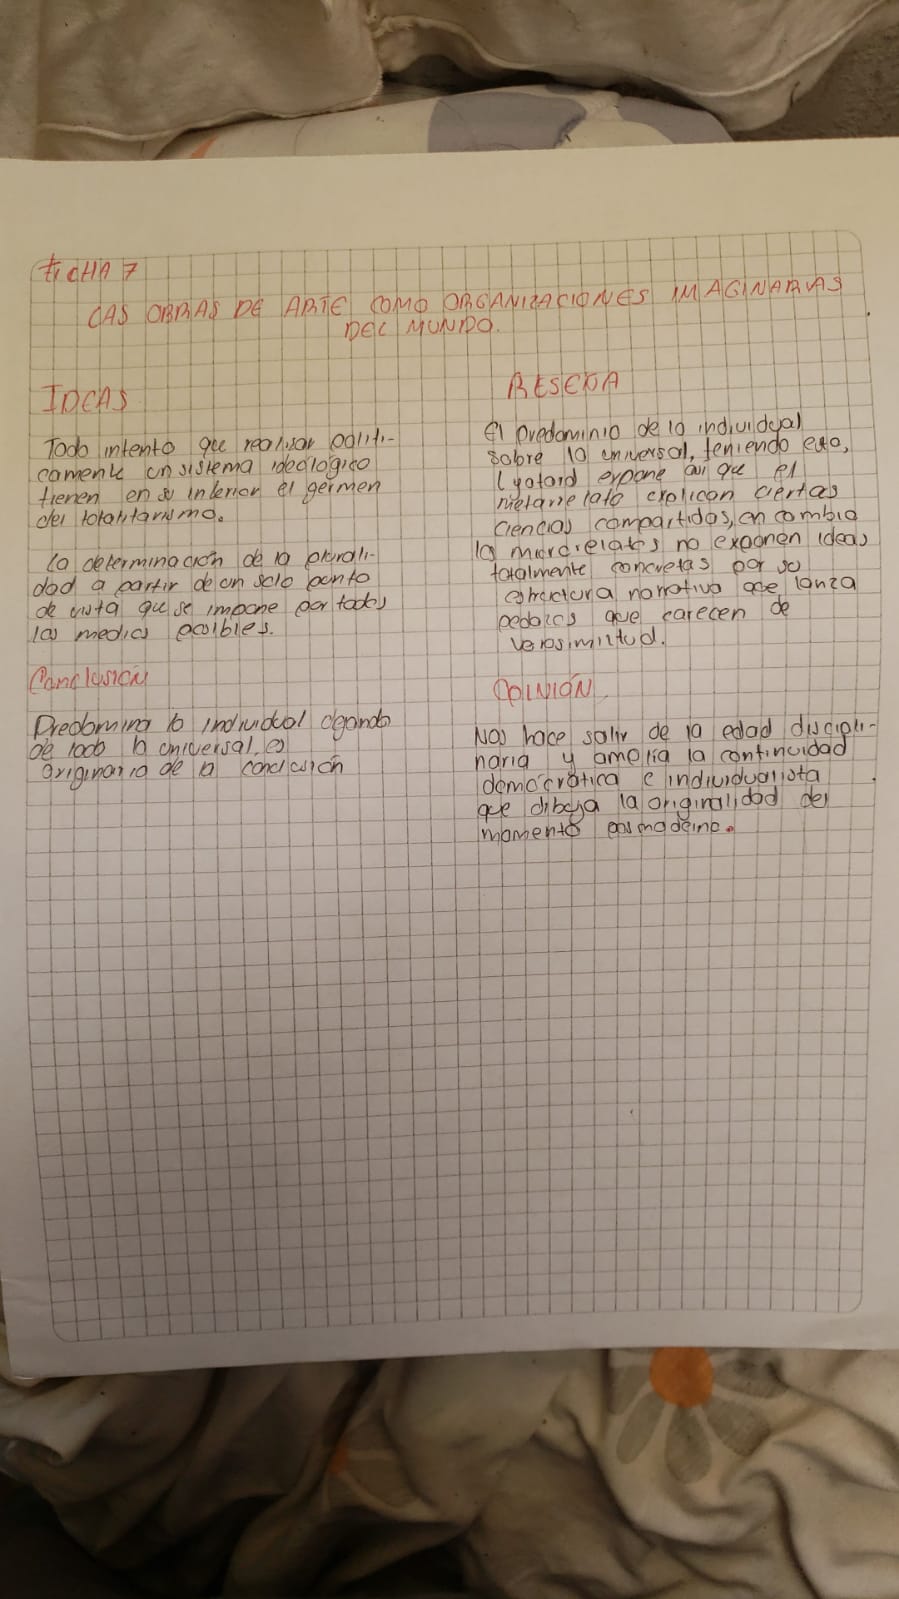 FICHA 7
LAS OBRAS DE ARTE COMO ORGANIZACIONES IMAGINARIAS
DEL MUNDO.
IDEAS
Todo intento que realisar politi-
camente un sistema ideológico
tienen en su interior el gérmen
del totalitarismo.
La determinación de la plurali-
dad a partir de un solo punto
de vista que se impone por todos
los medios posibles.
Conclusión
Predomina lo individual dejando
de lado lo universal, es
originario de la conclusión
RESEÑA
El predominio de lo individual
sobre lo universal, teniendo esto,
Lyotard expone así que el
metarrelato explican ciertas
ciencias compartidas, en cambio
lo microrelatos no exponen ideas
totalmente concretas por su
estructura narrativa que lanza
pedazos que carecen de
verosimilitud.
OPINIÓN
Nos hace salir de la edad discipli-
naria y amplia la continuidad
democrática e individualista
que dibuja la originalidad del
momento posmoderno.